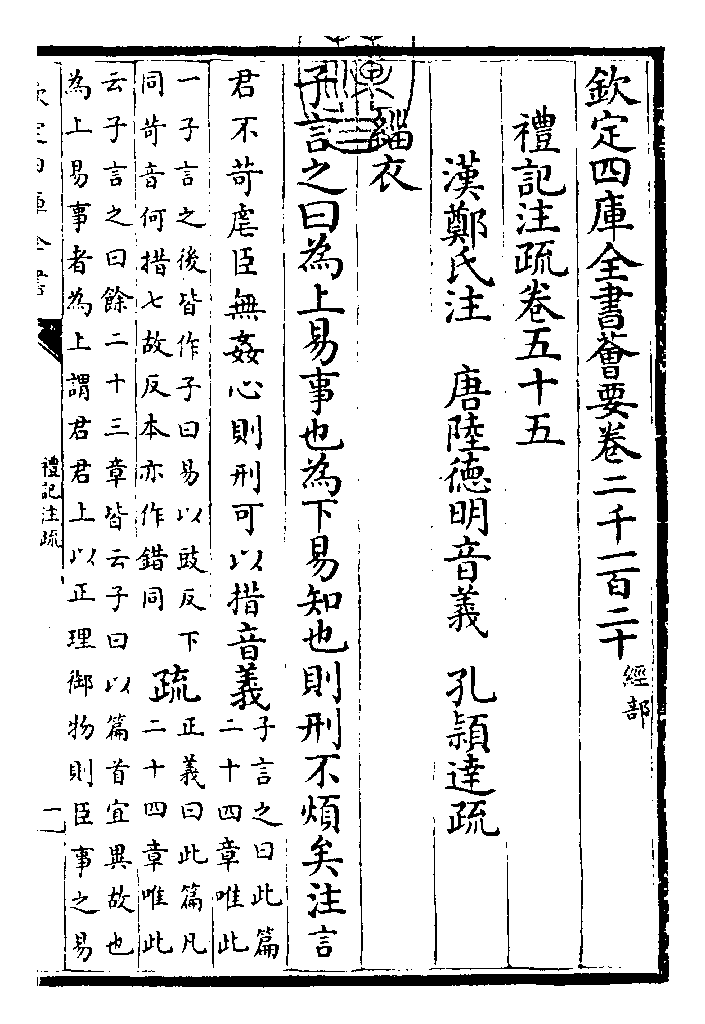 欽定四庫全書薈要卷二千一百二十 經部
禮記注疏卷五十五
漢鄭氏注 唐陸德明音義 孔穎達疏
緇衣
子言之曰為上易事也為下易知也則刑不煩矣注言
君不苛虐臣無姦心則刑可以措音義
子言之曰此篇
二十四章唯此
一子言之後皆作子曰易以豉反下
同苛音何措七故反本亦作錯同
疏
正義曰此篇凡
二十四章唯此
云子言之曰餘二十三章皆云子曰以篇首宜異故也
為上易事者為上謂君君上以正理御物則臣事之易
欽定四庫全書
禮記注疏
一